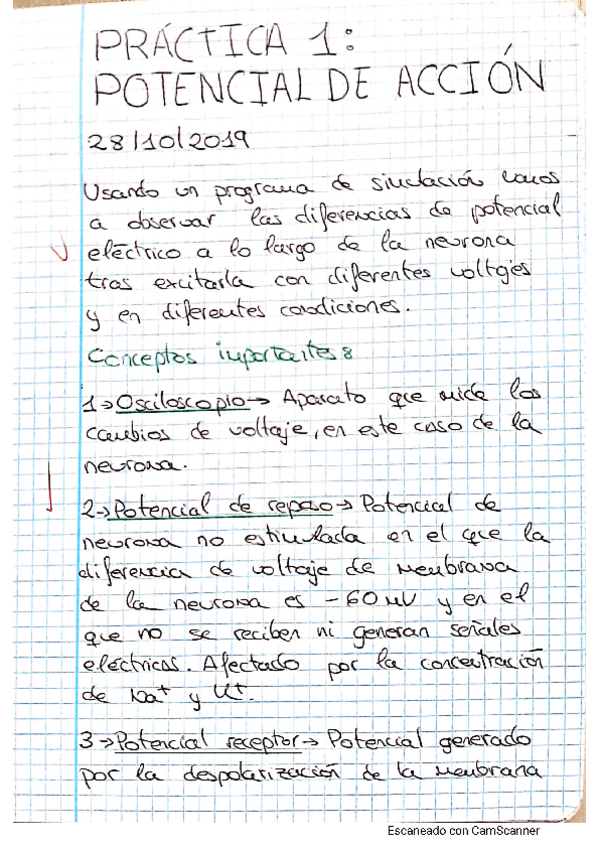 PRÁCTICA 1:
POTENCIAL DE ACCIÓN
28/10/2019
Usando un programa de simulación vamos
a observar las diferencias de potencial
eléctrico a lo largo de la neurona
tras excitarla con diferentes voltajes
y en diferentes condiciones.
Conceptos importantes:
1→Osciloscopio→ Aparato que mide los
cambios de voltaje, en este caso de la
neurona.
2→Potencial de reposo→ Potencial de
neurona no estimulada en el que la
diferencia de voltaje de membrana
de la neurona es -60mV y en el
que no se reciben ni generan señales
eléctricas. Afectado por la concentración
de Na⁺ y K⁺.
3→Potencial receptor→ Potencial generado
por la despolarización de la membrana
Escaneado con CamScanner